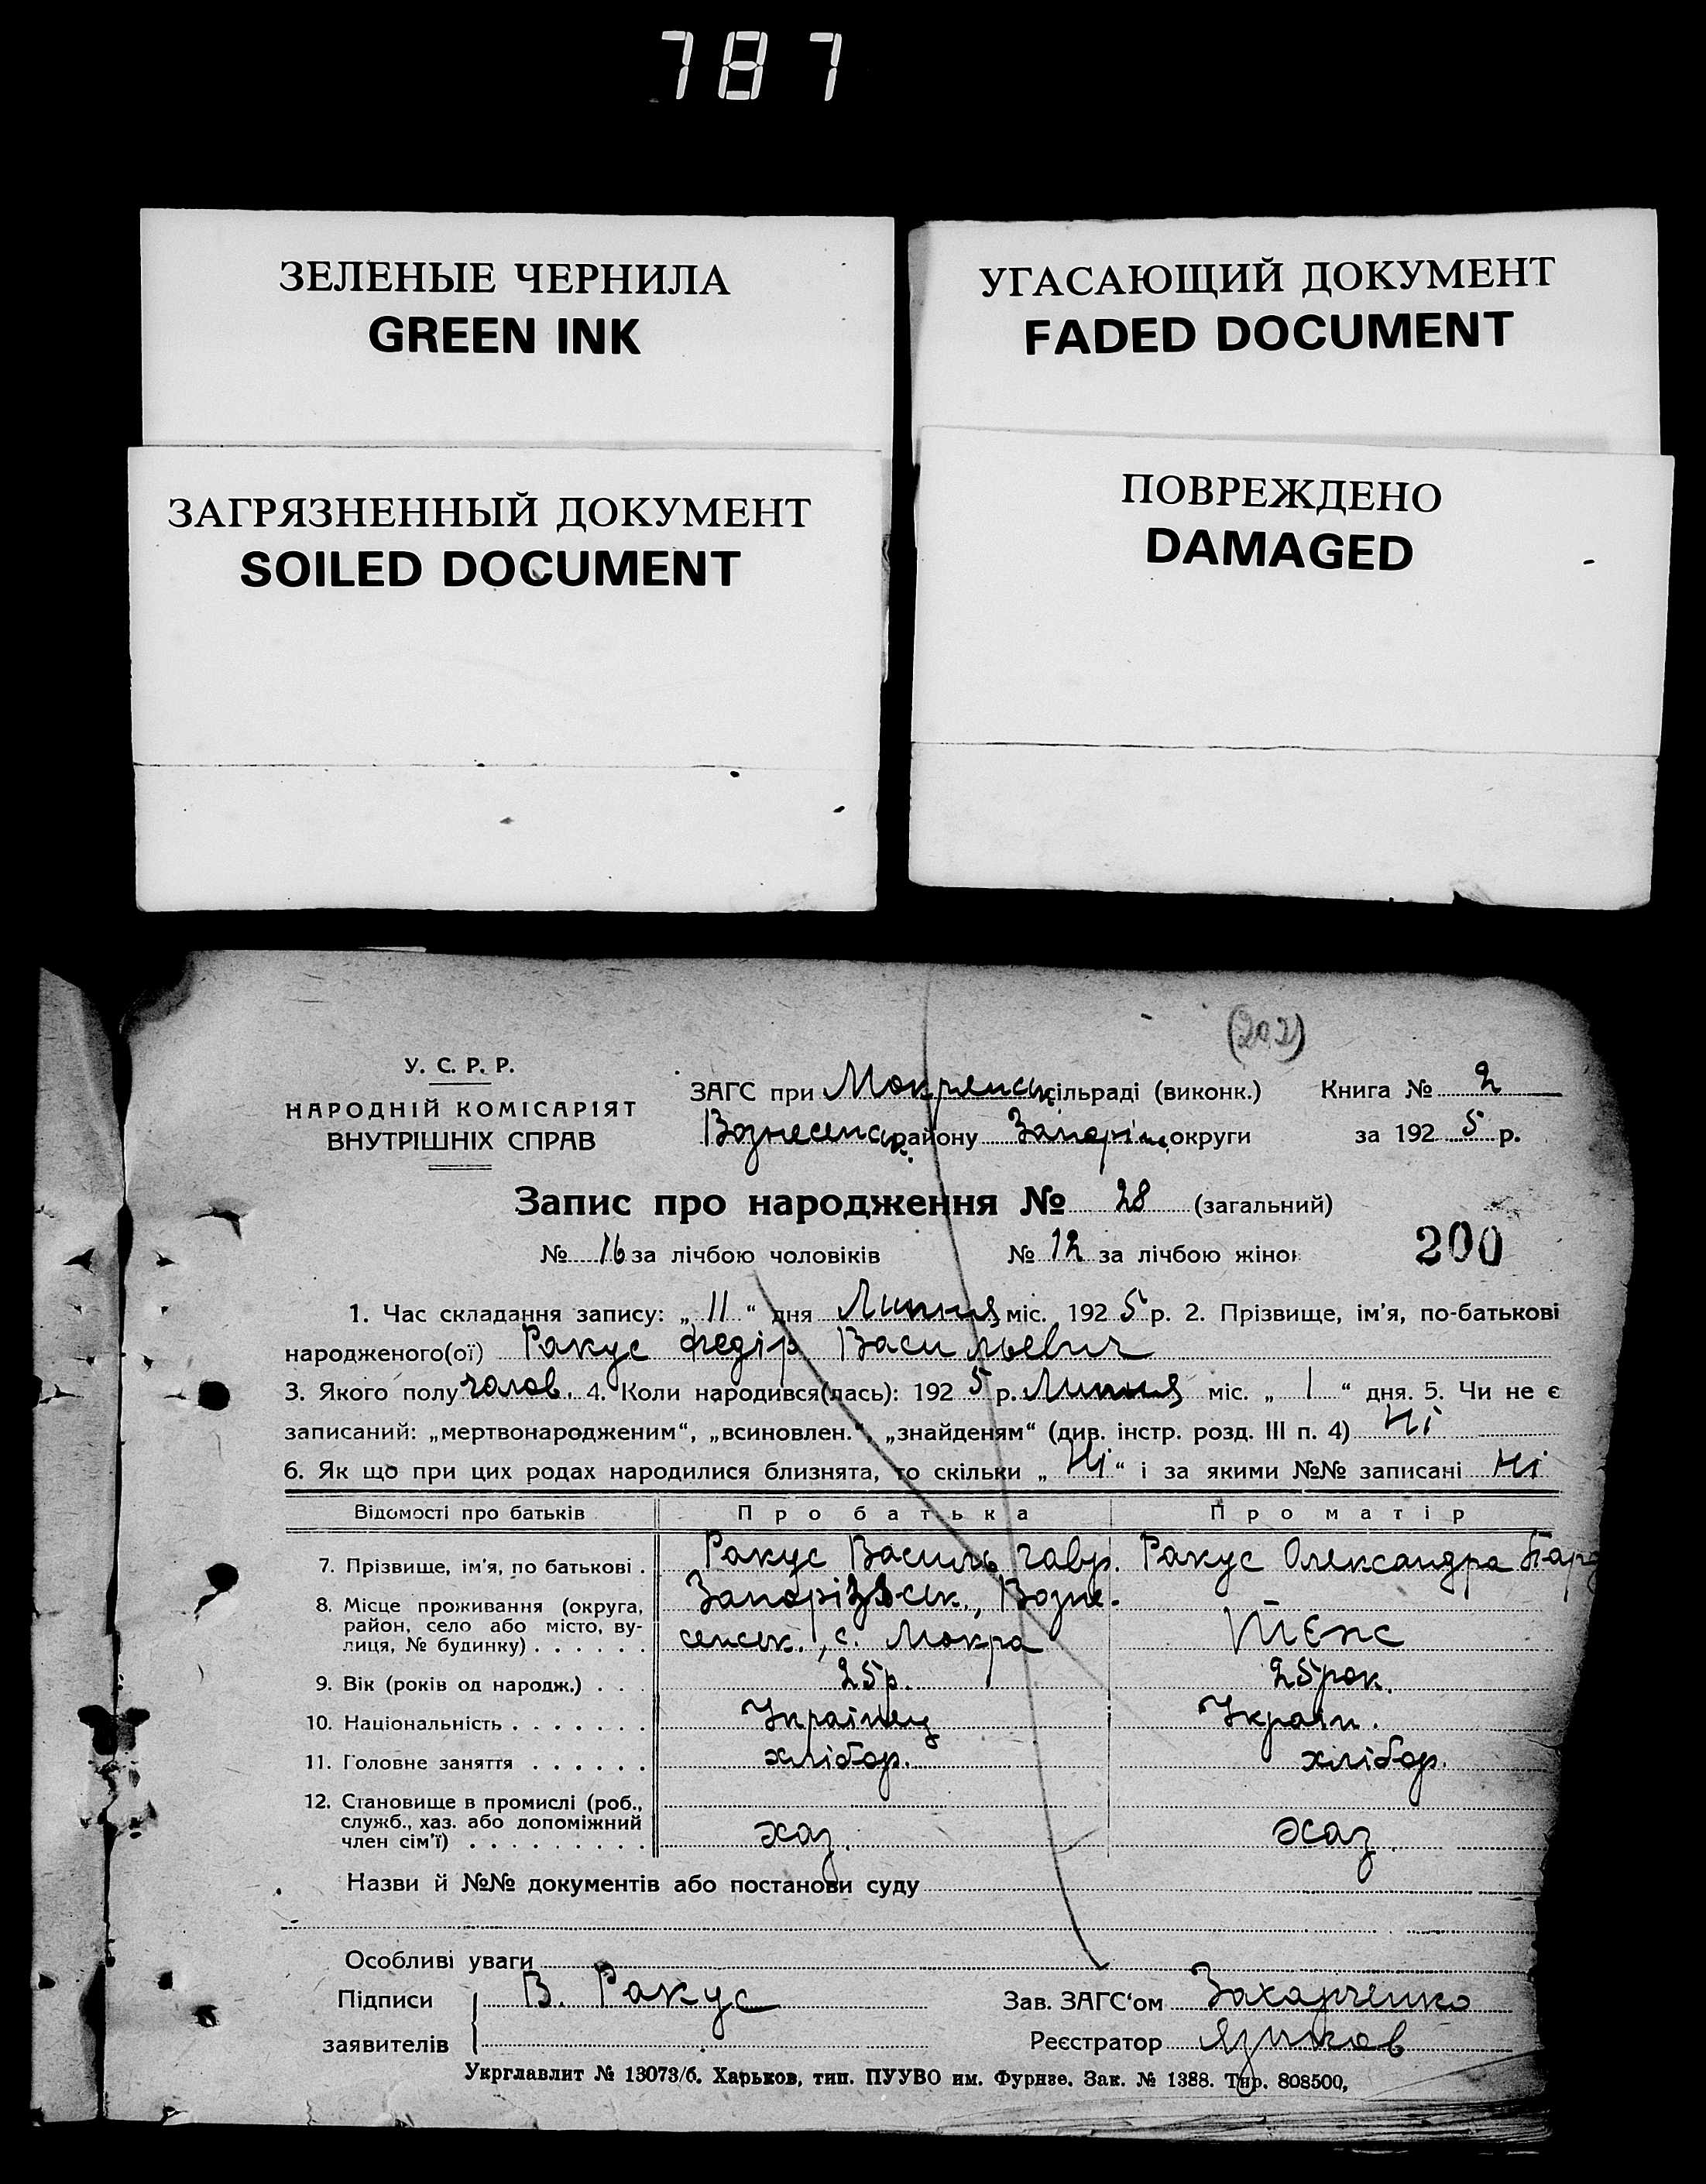 787
ЗЕЛЕНЫЕ ЧЕРНИЛА
GREEN INK
УГАСАЮЩИЙ ДОКУМЕНТ
FADED DOCUMENT
ЗАГРЯЗНЕННЫЙ ДОКУМЕНТ
SOILED DOCUMENT
ПОВРЕЖДЕНО
DAMAGED
(202)
У. С. Р. Р.
НАРОДНІЙ КОМІСАРІЯТ
ВНУТРІШНІХ СПРАВ
ЗАГС при Мокрянськ сільраді (виконк.) Книга № 2
Вознесенськ. району Запоріж. округи за 1925 р.
Запис про народження № 28 (загальний)
№ 16 за лічбою чоловіків № 12 за лічбою жінок 200
1. Час складання запису: „11“ дня Липня міс. 1925 р. 2. Прізвище, ім'я, по-батькові
народженого(ої) Ракус Федір Васильевич
3. Якого полу чолов. 4. Коли народився(лась): 1925 р. Липня міс. „1“ дня. 5. Чи не є
записаний: „мертвонародженим“, „всиновлен.“, „знайденям“ (див. інстр. розд. III п. 4) Ні
6. Як що при цих родах народилися близнята, то скільки „Ні“ і за якими №№ записані Ні
Відомості про батьків Про батька Про матір
7. Прізвище, ім'я, по батькові . Ракус Василь Гавр. Ракус Олександра Пар
8. Місце проживання (округа, Запорізьск., Возне-
район, село або місто, ву- сенськ., с. Мокра
лиця, № будинку) . . . . . . 
9. Вік (років од народж.) . . . 25 р. 25 рок.
10. Національність . . . . . . . Українец Україн.
11. Головне заняття . . . . . . хлібор. хлібор.
12. Становище в промислі (роб.,
служб., хаз. або допоміжний
член сім'ї) . . . . . . . . . хаз. хаз.
Назви й №№ документів або постанови суду
Особливі уваги
Підписи В. Ракус Зав. ЗАГС'ом Захарченко
заявителів Реєстратор
Укрглавлит № 13073/б. Харьков, тип. ПУУВО им. Фурнзе. Зак. № 1388. Тир. 808500,